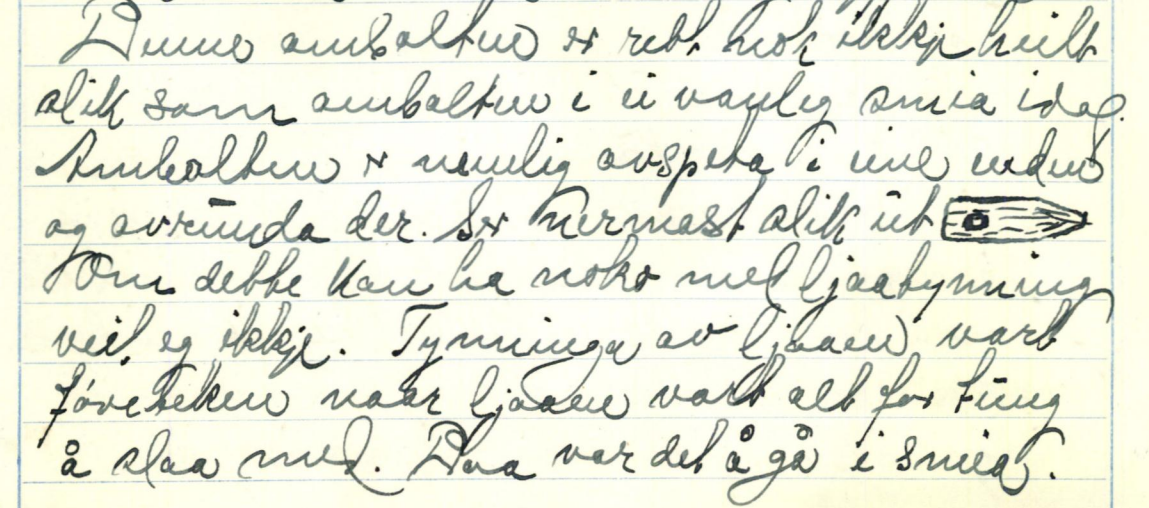 Denne ambolten er rett nok ikkje heilt
slik som ambolten i ei vanleg smia idag.
Ambolten er nemlig avspeta i eine enden
og avrunda der. Ser nermast slik ut
Om dette kan ha noko med ljaatynning
veit eg ikkje. Tynninga av ljaaen vart
företeken naar ljaaen vart alt for tung
å slaa med. Daa var det å gå i smia.